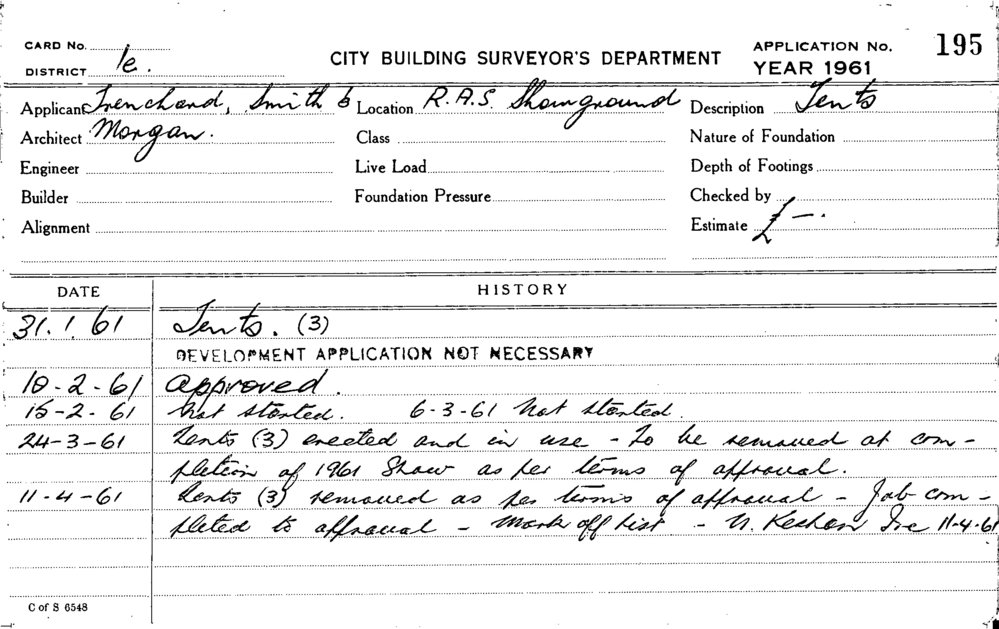 CARD No.
CITY BUILDING SURVEYOR'S DEPARTMENT
APPLICATION No. 195
DISTRICT 1e.
YEAR 1961
Applicant Trenchard, Smith & Location R.A.S. Showground Description Tents
Architect Morgan. Class Nature of Foundation
Engineer Live Load Depth of Footings
Builder Foundation Pressure Checked by
Alignment Estimate £ —.
DATE HISTORY
31.1.61 Tents. (3)
DEVELOPMENT APPLICATION NOT NECESSARY
10-2-61 approved.
15-2-61 Not started. 6-3-61 Not started.
24-3-61 Tents (3) erected and in use - To be removed at com-
pletion of 1961 Show as per terms of approval.
11-4-61 Tents (3) removed as per terms of approval - Job com-
pleted to approval - Mark off list - 11-4-61
C of S 6548